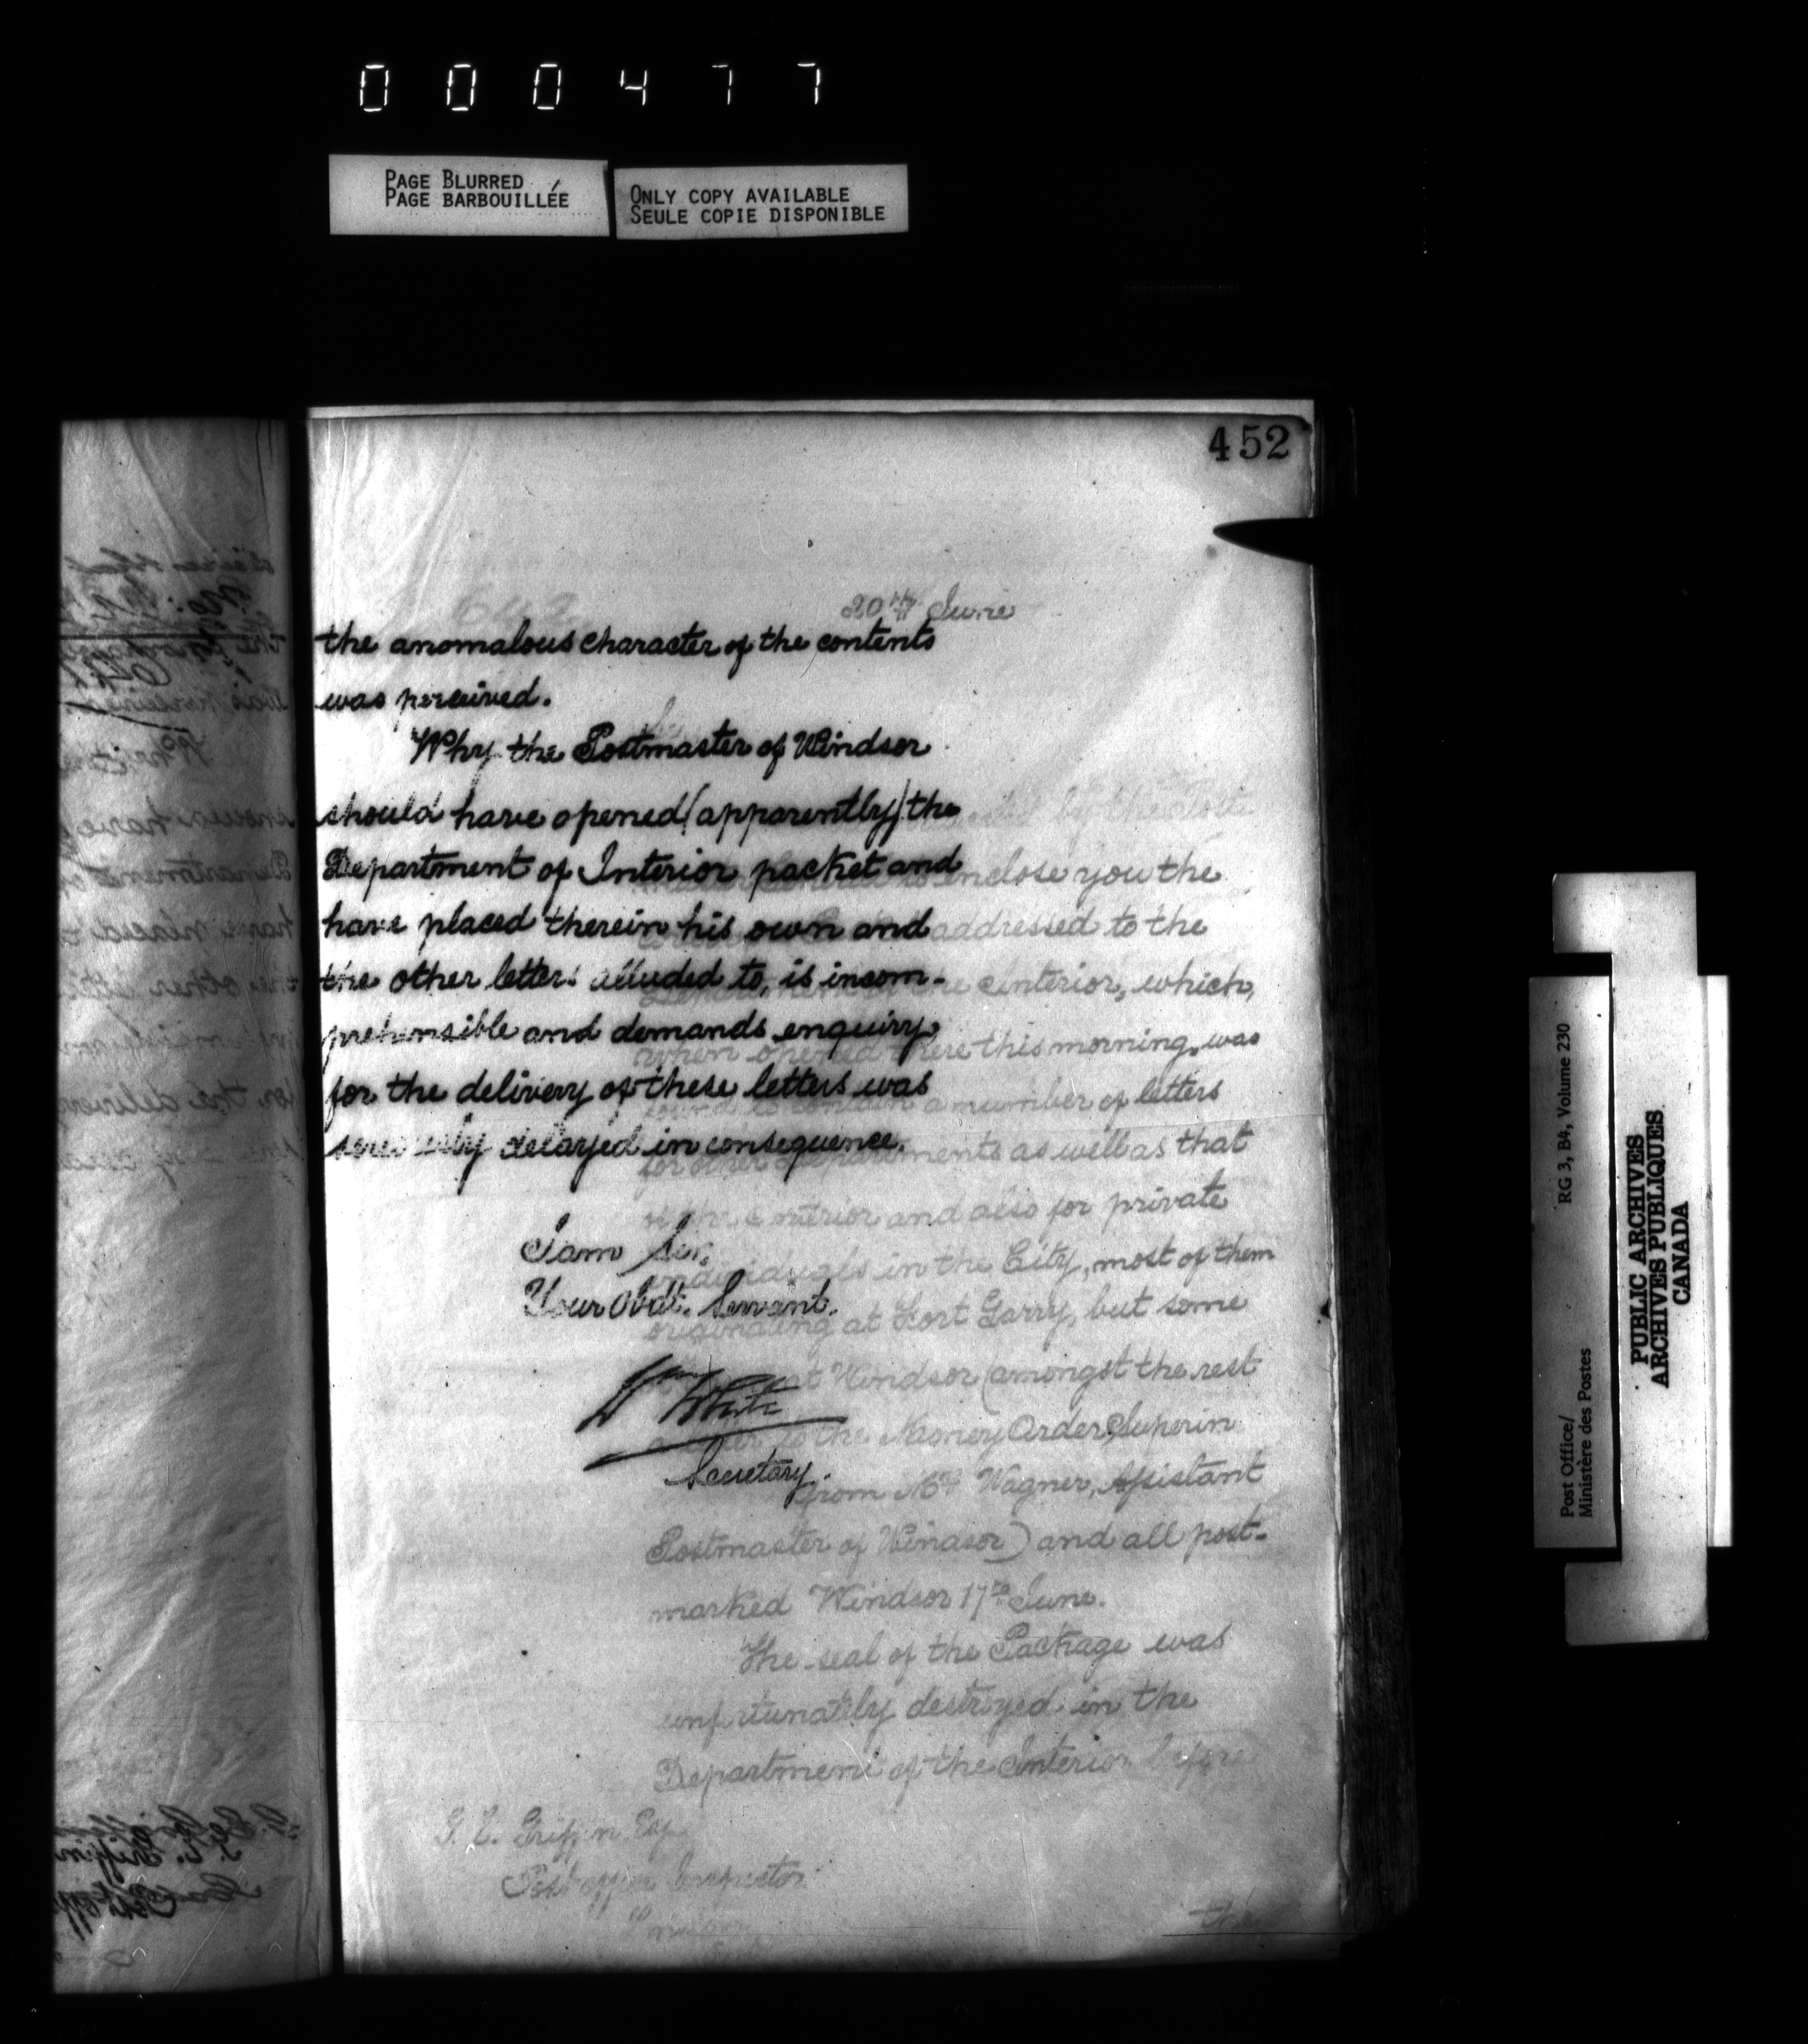 000477
PAGE BLURRED
PAGE BARBOUILLÉE
ONLY COPY AVAILABLE
SEULE COPIE DISPONIBLE
452
20th June
the anomalous character of the contents
was perceived.
Why the Postmaster of Windsor
should have opened (apparently) the
Department of Interior packet and
have placed therein his own and
the other letters alluded to, is incom-
prehensible and demands enquiry
for the delivery of these letters was
delayed in consequence.
I am Sir,
Your Obdt. Servant.
W White
Secretary.
by the Post
enclose you the
addressed to the
Interior, which,
when opened there this morning, was
found to contain a number of letters
for other Departments as well as that
of the Interior and also for private
individuals in the City, most of them
originating at Fort Garry, but some
at Windsor (amongst the rest
to the Money Order Superin
from Mr Wagner, Assistant
Postmaster of Windsor) and all post-
marked Windsor 17th June.
The seal of the Package was
unfortunately destroyed in the
Department of the Interior before
G. E. Griffin Esq
Post Office Inspector
the
Post Office/
Ministère des Postes
RG 3, B4, Volume 230
PUBLIC ARCHIVES
ARCHIVES PUBLIQUES
CANADA